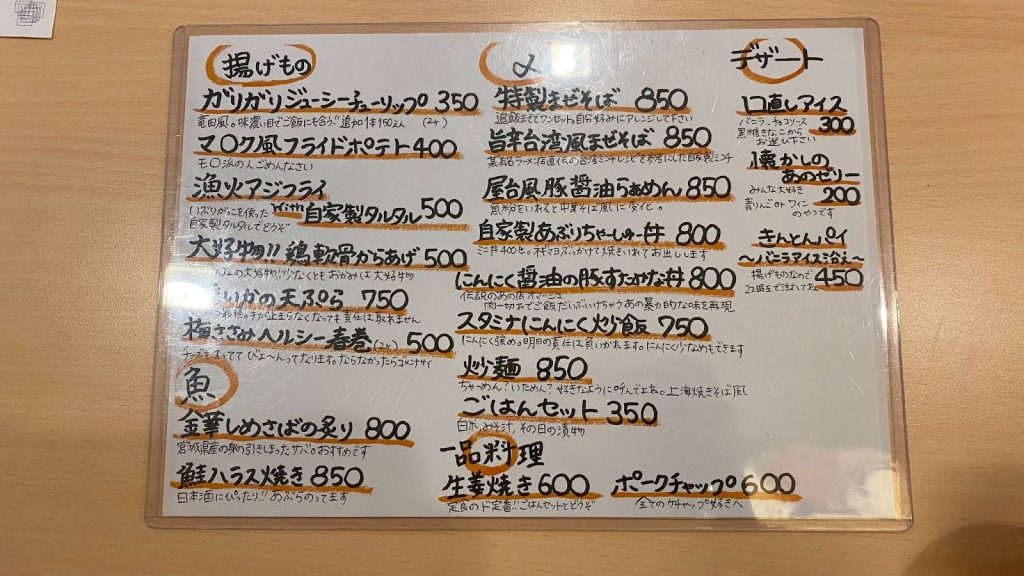 揚げもの
ガリガリジューシーチューリップ 350
竜田風。味濃い目でご飯にも合う!! 追加1本150えん (2ヶ)
マ〇ク風フライドポテト 400
モ〇派の人ごめんなさい
漁火アジフライ
with 自家製タルタル 500
いぶりがっこを使った
自家製タルタルでどうぞ
大好物!! 鶏軟骨からあげ 500
の大好物!! 少なくともおかみは大好物
いかの天ぷら 750
手が止まらなくなっても責任は取れません
梅ささみヘルシー春巻(2ヶ) 500
びよ〜んってなります。ならなかったらゴメンナサイ
魚
金華しめさばの炙り 800
宮城県産の身の引きしまったサバ。おすすめです
鮭ハラス焼き 850
日本酒にぴったり!! あぶらのってます
〆
特製まぜそば 850
追飯までワンセット。自分好みにアレンジして下さい
旨辛台湾風まぜそば 850
某有名ラーメン店直伝の台湾ミンチレシピを参考にした自家製ミンチ
屋台風豚醤油らぁめん 850
魚粉をいれると中華そば風に変化。
自家製あぶりちゃーしゅー丼 800
ミニ丼400も。ネギマヨぶっかけて焼きいれてお出しします
にんにく醤油の豚すたかな丼 800
伝説のあの店イマージュ
肉一切れでご飯だいぶいけちゃうあの暴力的な味を再現
スタミナにんにく炒飯 750
にんにく強め。明日の責任は負いかねます。にんにく少なめもできます
炒麺 850
ちゃーめん?いためん?好きなように呼んでよね。上海焼きそば風
ごはんセット 350
白米、みそ汁、その日の漬物
一品料理
生姜焼き 600
定食のド定番!! ごはんセットとどうぞ
ポークチャップ 600
全てのケチャップ好きへ
デザート
口直しアイス
300
バニラ、チョコソース
黒糖きなこから
お選び下さい
懐かしの
あのゼリー
200
みんな大好き
青りんごorワイン
のやつです
きんとんパイ
〜バニラアイス添え〜
450
揚げものなので
22時まで注文してね